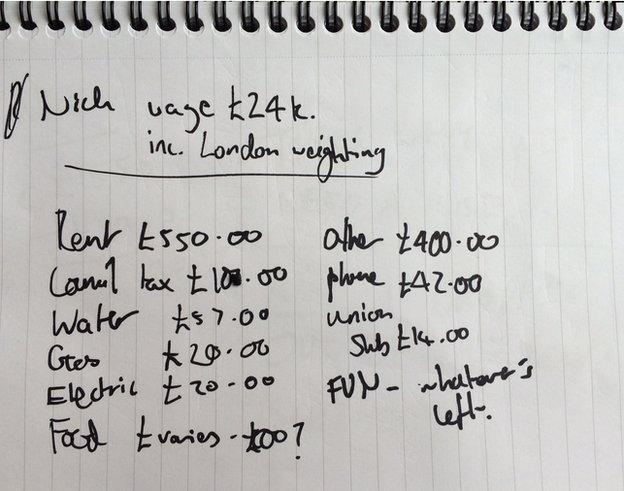 Nick wage £24k.
inc. London weighting
Rent £550.00
Council tax
Water £57.00
Gas £20.00
Electric £20.00
Food £varies -
Other £400.00
phone £42.00
union
Subs £14.00
FUN - whatever's
left.